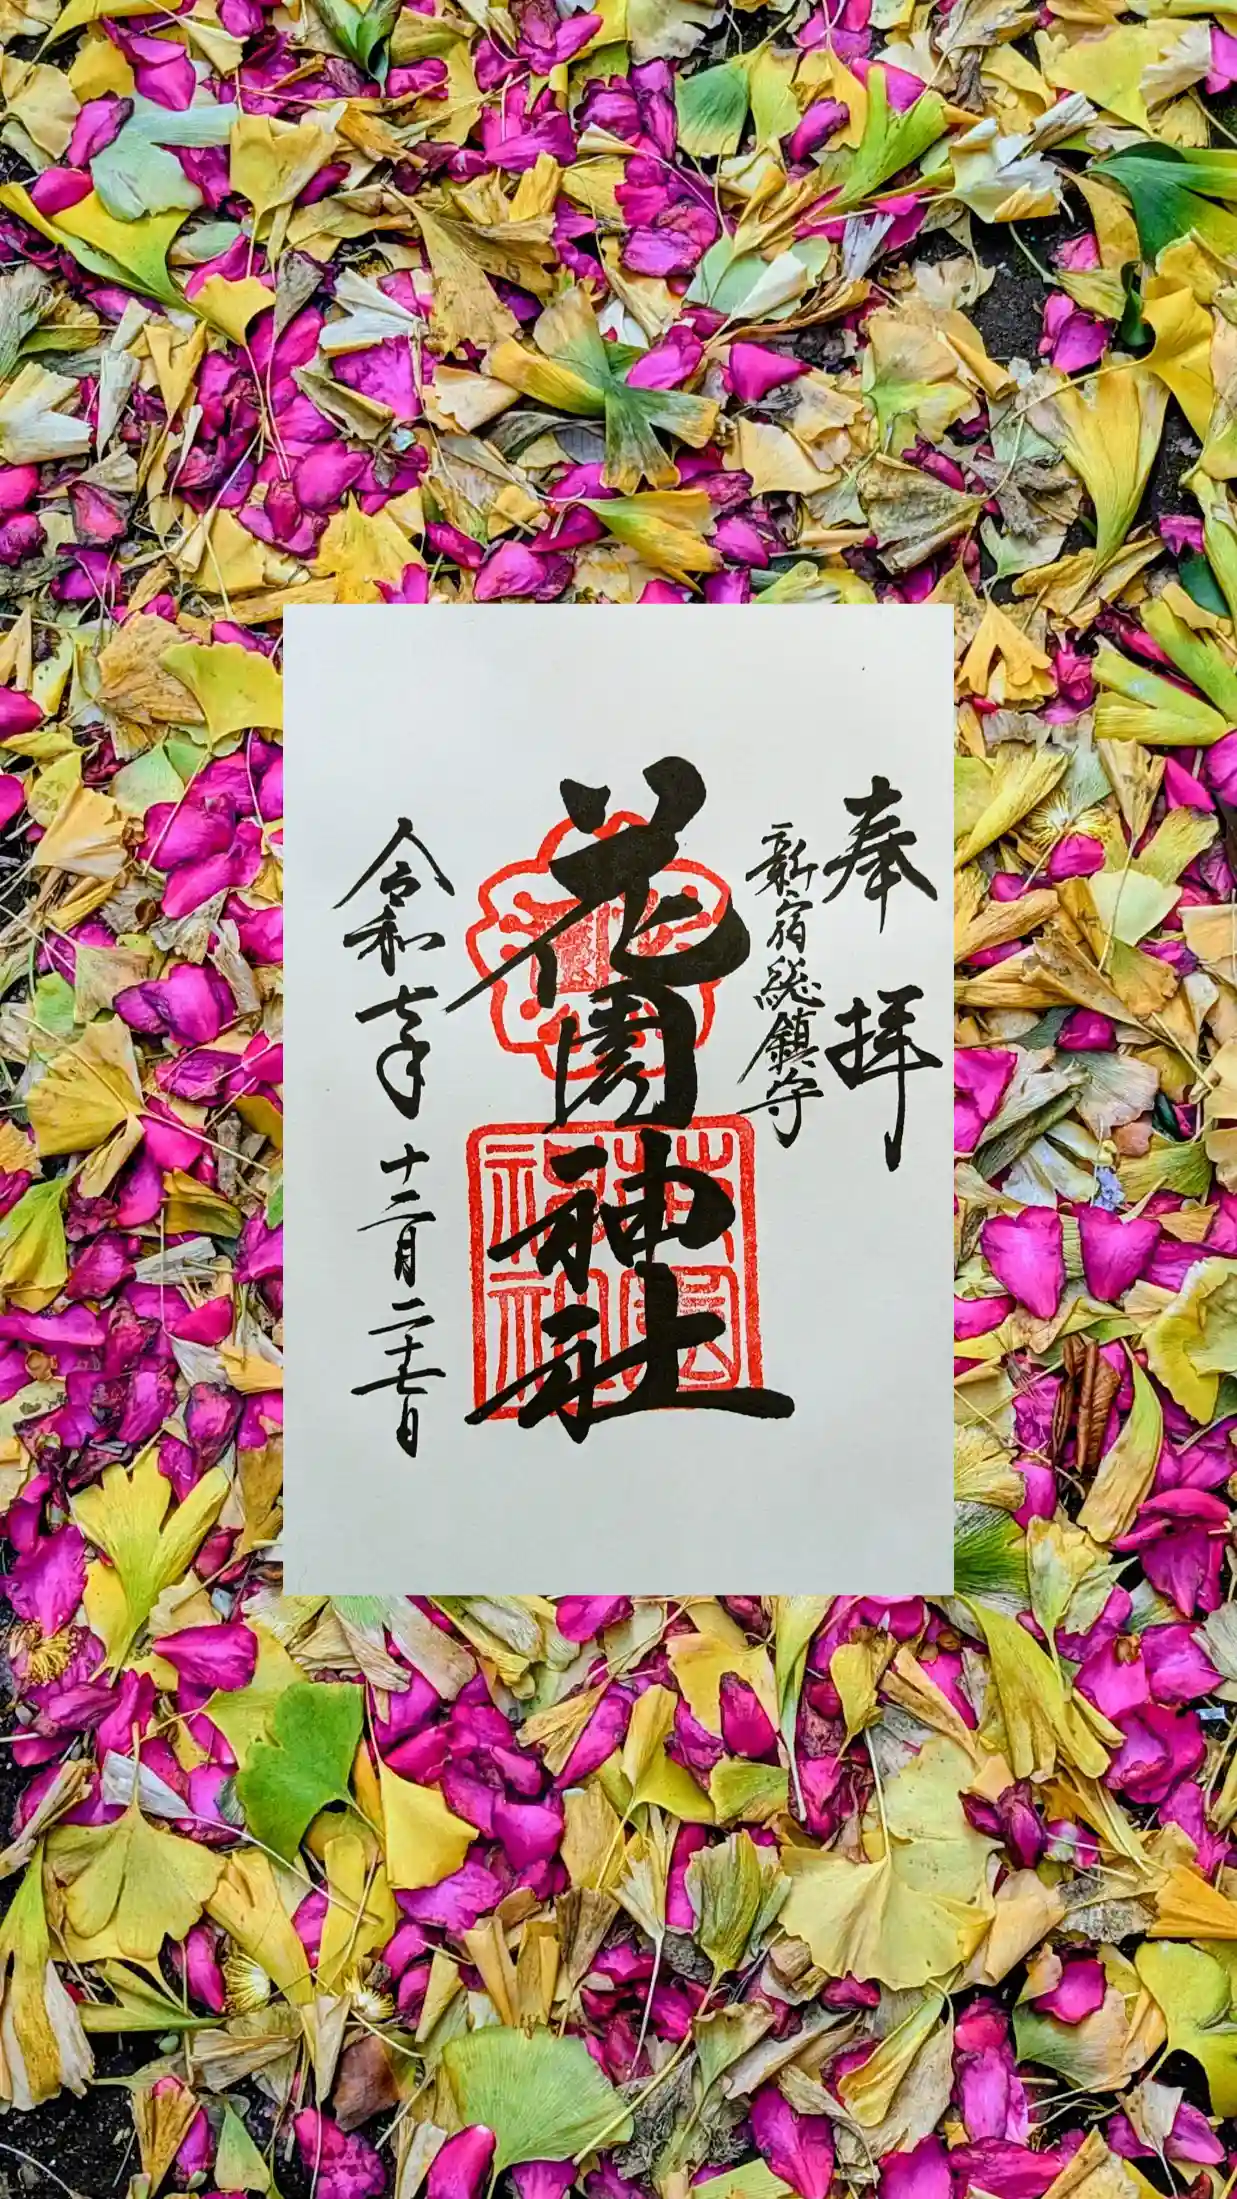 奉拝
新宿総鎮守
花園神社
花園神社
令和七年十二月二十七日